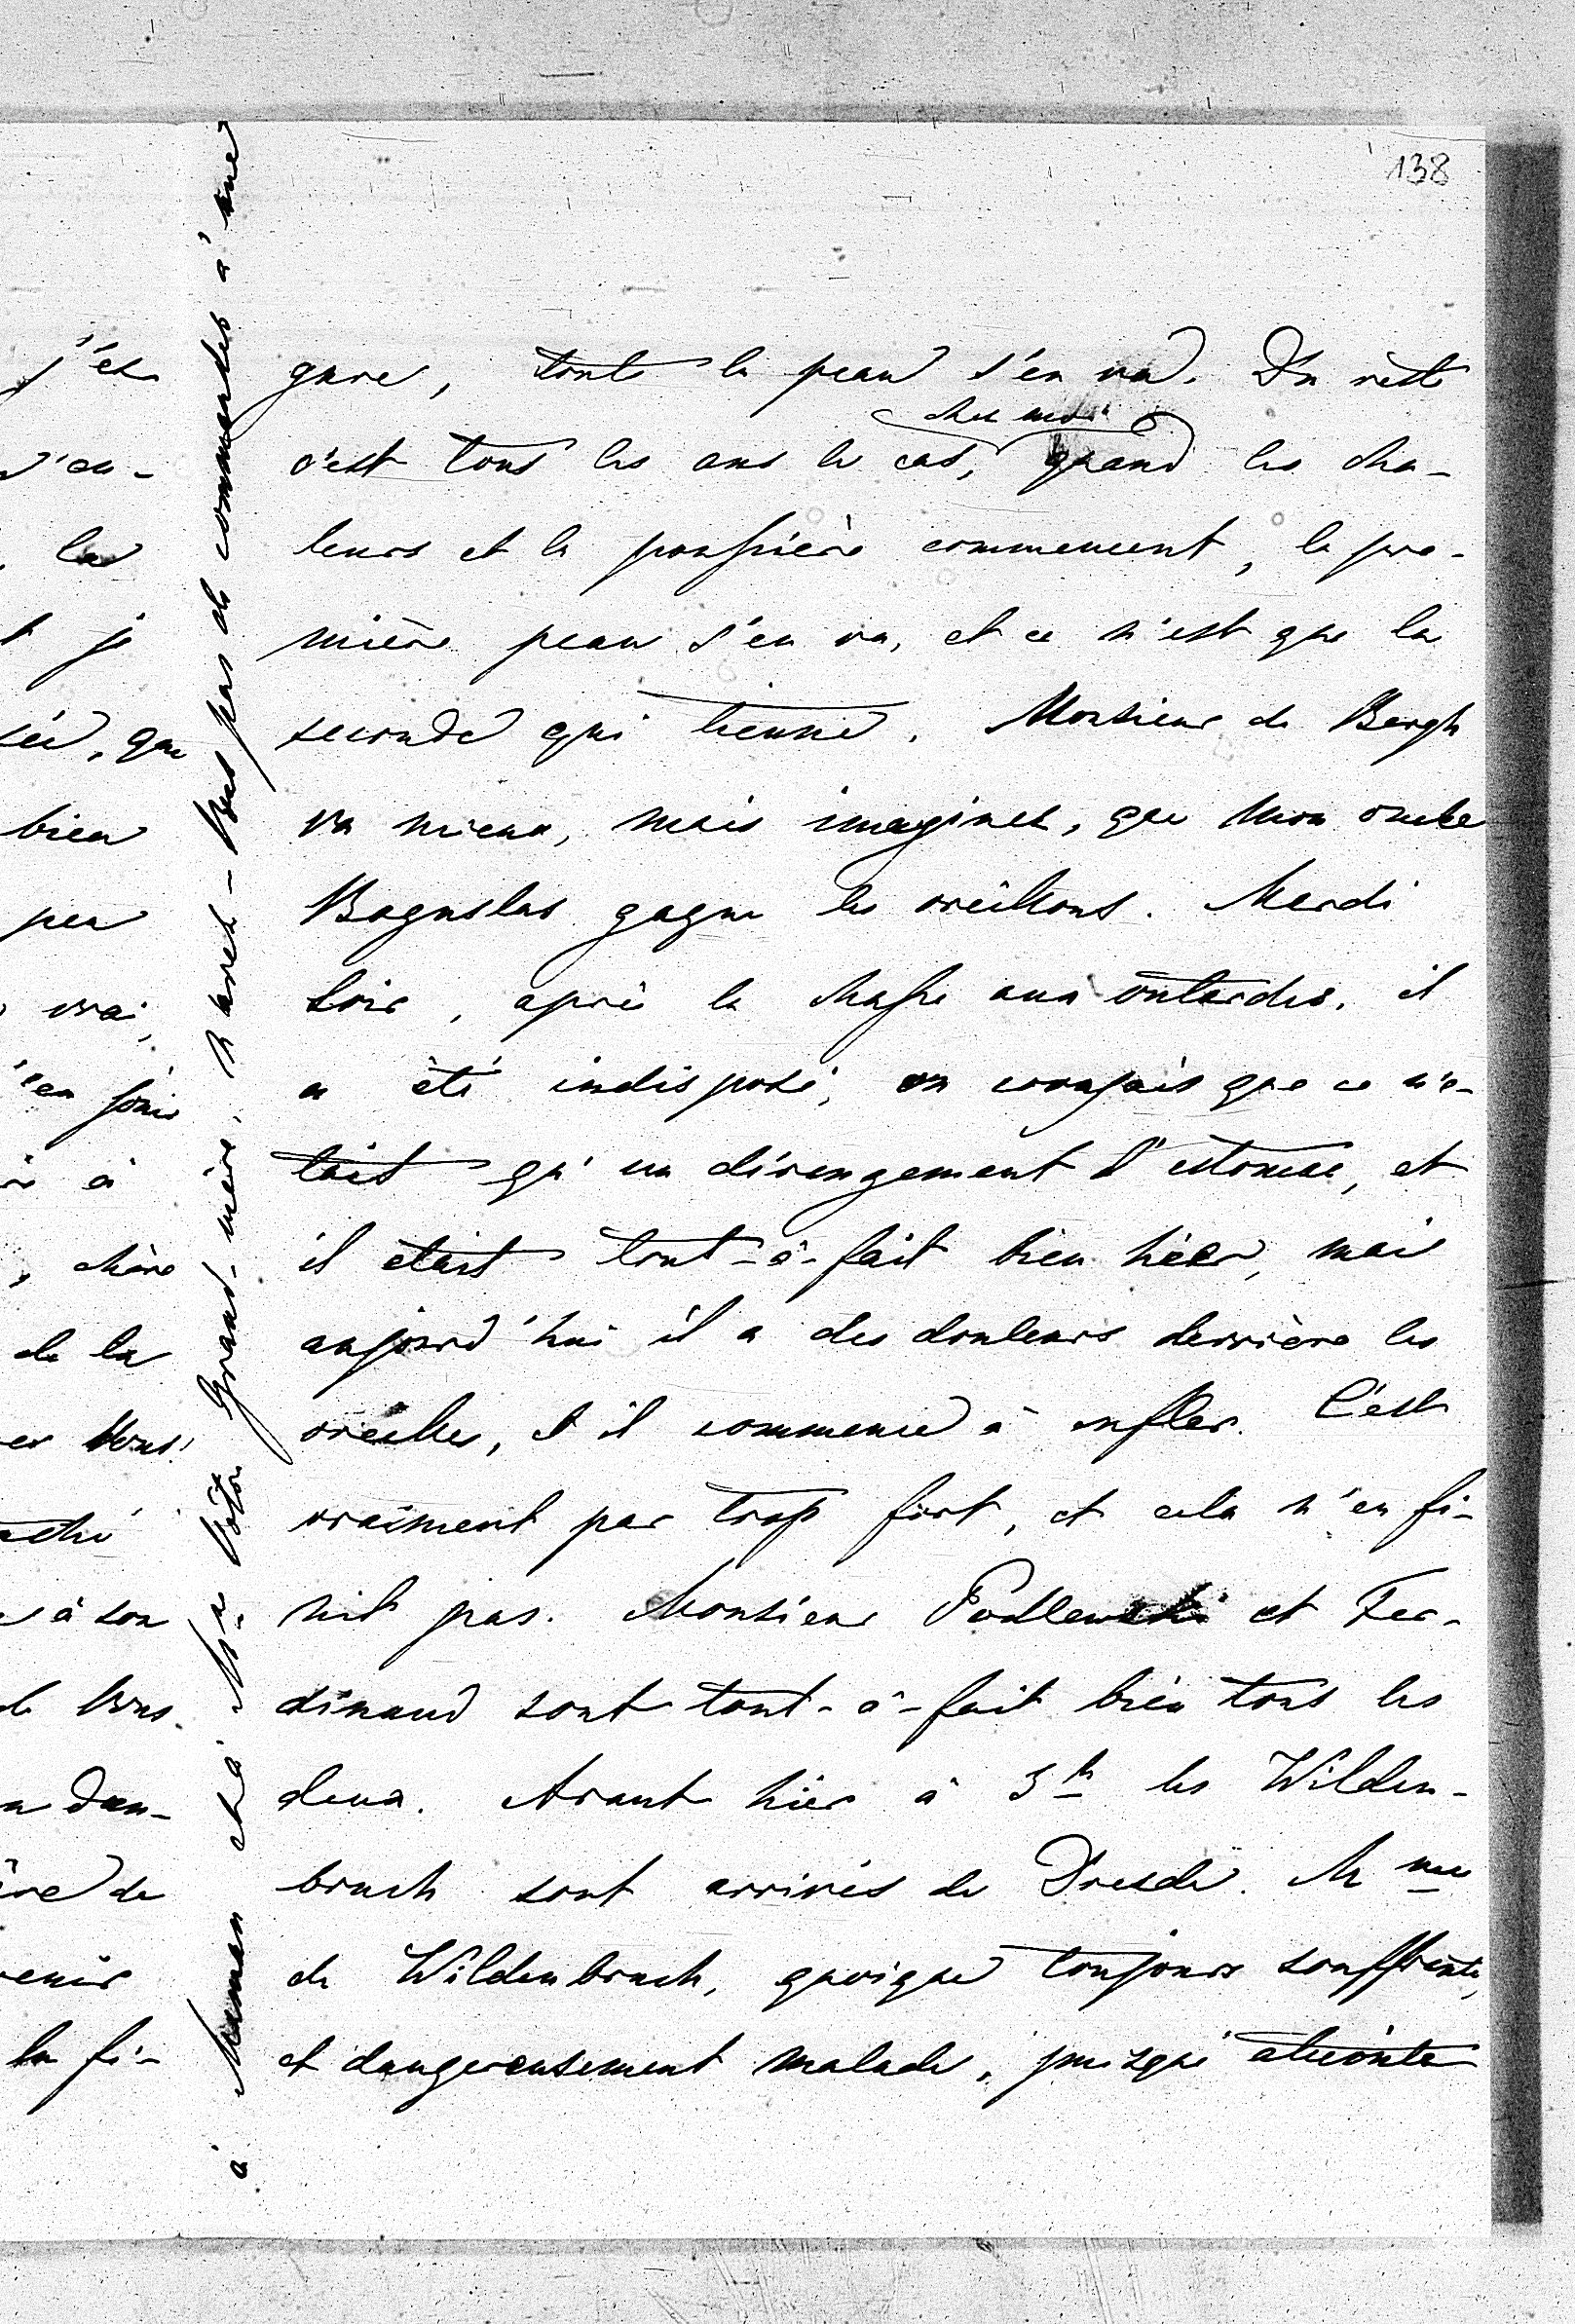 138
gure, toute la peau s'en va. Du reste
chez moi
c'est tous les ans le cas, quand les cha-
leurs et la poussière commencent, la pre-
mière peau s'en va, et ce n'est que la
seconde qui tienne. Monsieur de Bergh
va mieux, mais imaginez, que mon oncle
Boguslas gagne les oreillons. Mardi
soir, après la chasse aux outardes, il
a été indisposé, on croyais que ce n'é-
tait qu'un dérangement d'estomac, et
il était tout-à-fait bien hier, mais
aujourd'hui il a des douleurs derrière les
oreilles, et il commence à enfler. C'est
vraiment par trop fort, et cela n'en fi-
nit pas. Monsieur Podlewski et Fer-
dinand sont tout-à-fait bien tous les
deux. Avant hier à 3h les Wilden-
bruch sont arrivés de Dresde. Mme
de Wildenbruch, quoique toujours souffrante,
et dangereusement malade, puisque atteinte
à Maman et à Mme Votre Grand-mère. N'avez-Vous pas de commandes à me
j'es
n'en-
la
je
sée, que
bien
peu
vrai,
à
chère
de la
Vous!
à son
de Vous.
dan-
de
la fi-